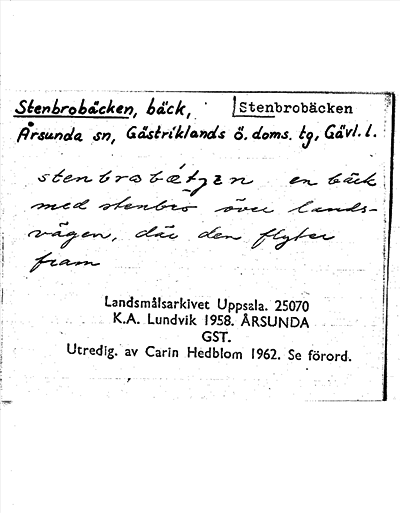 Stenbrobäcken, bäck, Stenbrobäcken
Årsunda sn, Gästriklands ö. doms. tg, Gävl. l.
en bäck
med stenbro över lands-
vägen, där den flyter
fram
Landsmålsarkivet Uppsala. 25070
K.A. Lundvik 1958. ÅRSUNDA
GST.
Utredig. av Carin Hedblom 1962. Se förord.